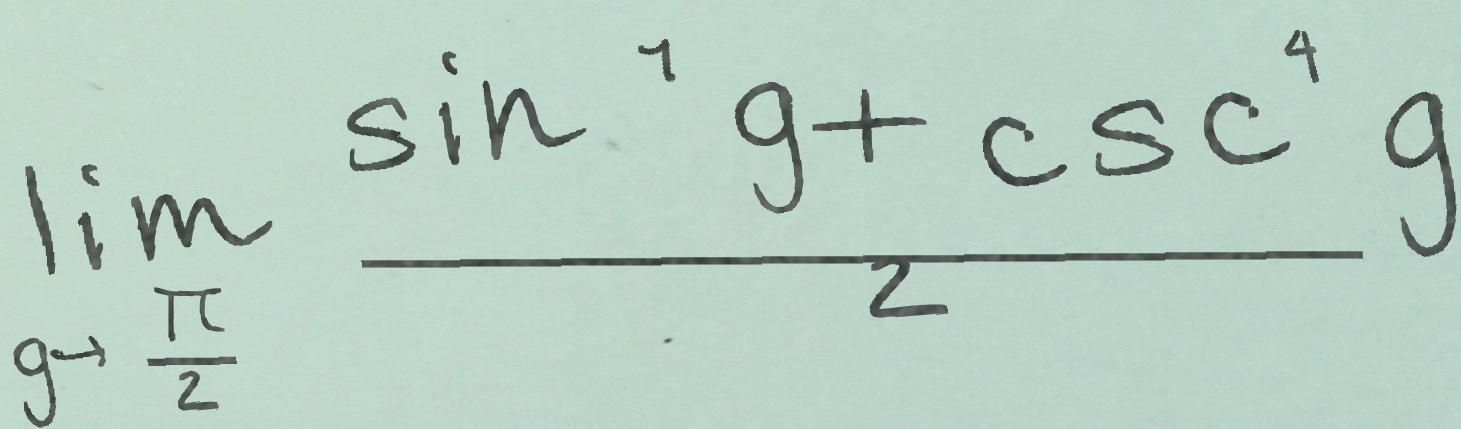 \lim_{g \to \frac{\pi}{2}} \frac{\sin^4 g + \csc^4 g}{2}